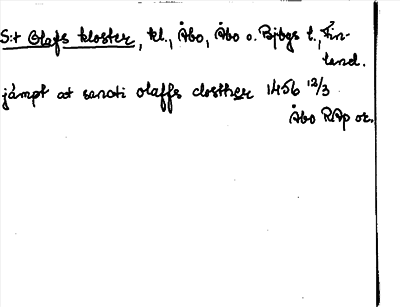 S:t Olofs kloster, kl., Åbo, Åbo o. Bjbgs l., Fin-
land.
jämpt at sancti olaffs closther 1456 12/3
Åbo RAp or.